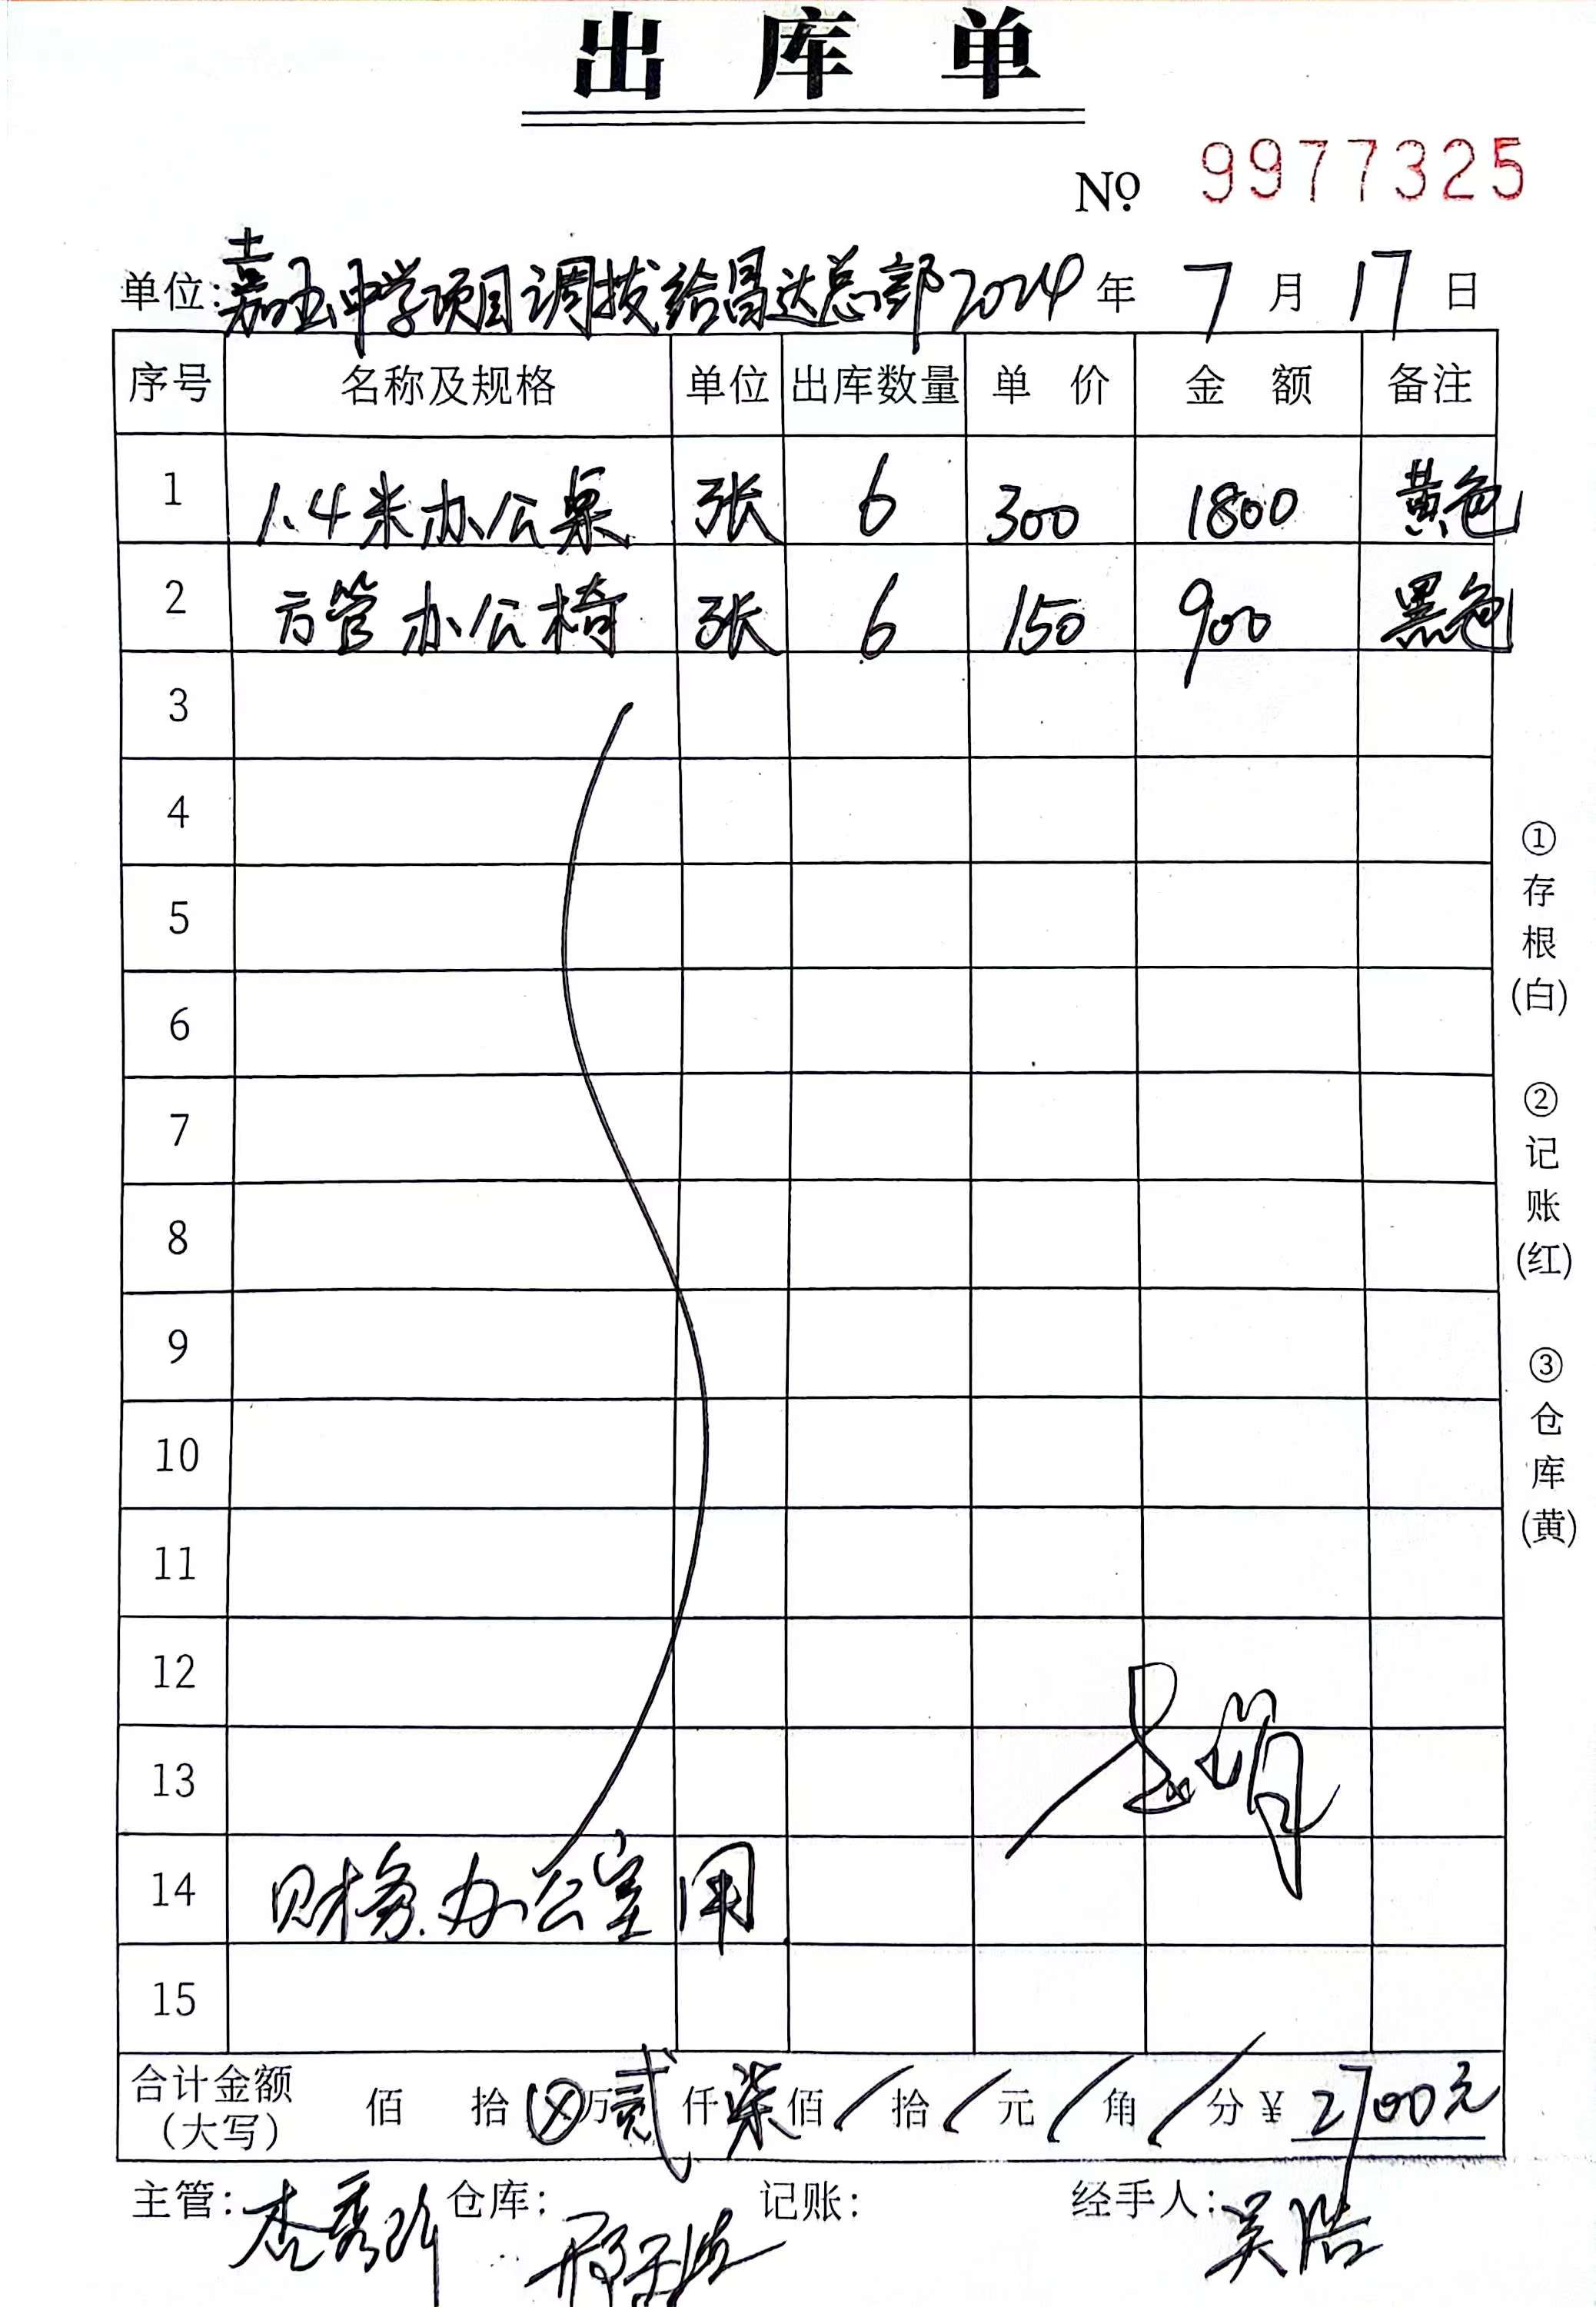 出库单
№ 9977325
单位:嘉玉中学项目调拔给昌达总部 2024 年 7 月 17 日
序号 名称及规格 单位 出库数量 单价 金额 备注
1 1.4米办公桌 张 6 300 1800 黄色
2 方管办公椅 张 6 150 900 黑色
3
4
5
6
7
8
9
10
11
12
13
14 财务办公室用
15
合计金额(大写) 佰 拾 ⊗万 贰仟 柒佰 / 拾 / 元 / 角 / 分 ¥ 2700元
主管: 仓库: 记账: 经手人:吴浩
①存根(白)
②记账(红)
③仓库(黄)